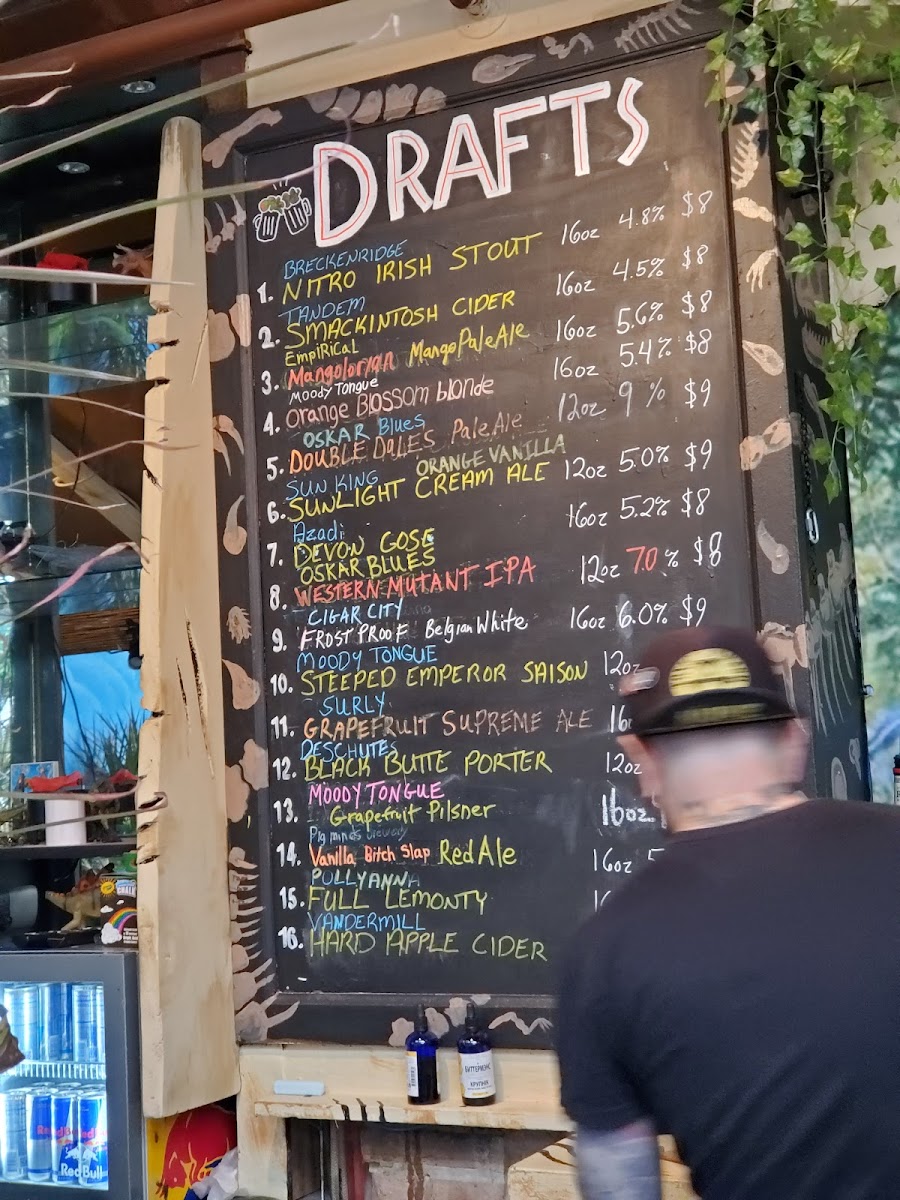 DRAFTS
BRECKENRIDGE
1. NITRO IRISH STOUT 16oz 4.8% $8
TANDEM
2. SMACKINTOSH CIDER 16oz 4.5% $8
EmpiRical
3. Mangolorian MangoPaleAle 16oz 5.6% $8
Moody Tongue
4. Orange Blossom blonde 16oz 5.4% $8
OSKAR Blues
5. DOUBLE DALES Pale Ale 12oz 9 % $9
SUN KING ORANGE VANILLA
6. SUNLIGHT CREAM ALE 12oz 5.0% $9
Azadi
7. DEVON GOSE 16oz 5.2% $8
OSKAR BLUES
8. WESTERN MUTANT IPA 12oz 7.0 % $8
CIGAR CITY
9. FROST PROOF Belgian White 16oz 6.0% $9
MOODY TONGUE
10. STEEPED EMPEROR SAISON 12oz
SURLY
11. GRAPEFRUIT SUPREME ALE 16
DESCHUTES
12. BLACK BUTTE PORTER 12oz
MOODY TONGUE
13. Grapefruit Pilsner 16oz
Pig minds brewery
14. Vanilla Bitch Slap Red Ale 16oz 5
POLLYANNA
15. FULL LEMONTY
VANDERMILL
16. HARD APPLE CIDER
Red Bull